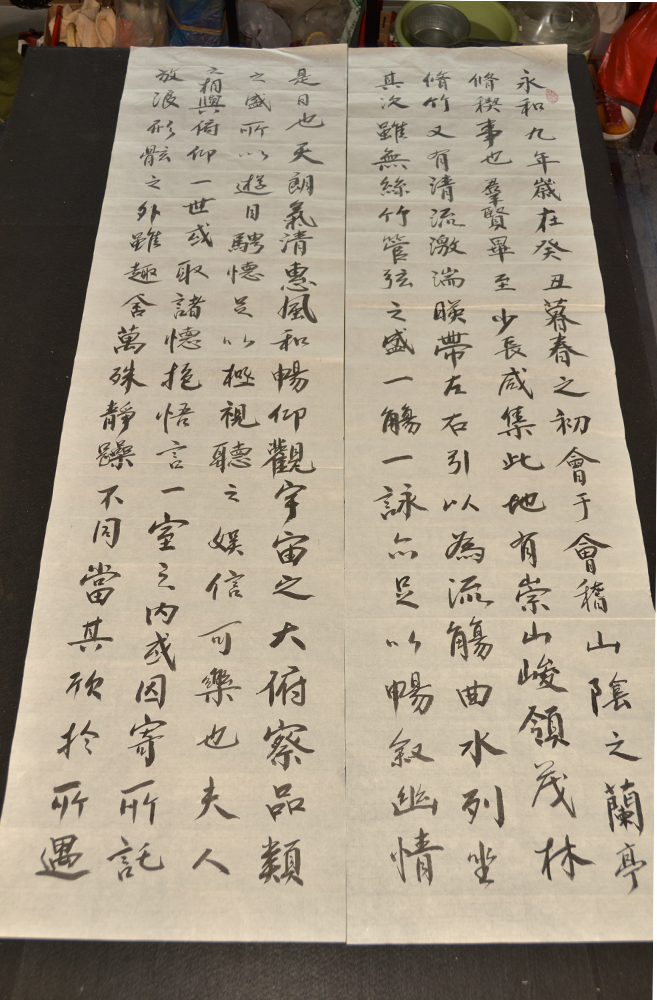 永和九年歲在癸丑暮春之初會于會稽山陰之蘭亭
脩稧事也羣賢畢至少長咸集此地有崇山峻領茂林
脩竹又有清流激湍暎帶左右引以為流觴曲水列坐
其次雖無絲竹管弦之盛一觴一詠亦足以暢敘幽情
是日也天朗氣清惠風和暢仰觀宇宙之大俯察品類
之盛所以遊目騁懷足以極視聽之娛信可樂也夫人
之相與俯仰一世或取諸懷抱悟言一室之內或因寄所託
放浪形骸之外雖趣舍萬殊靜躁不同當其欣於所遇